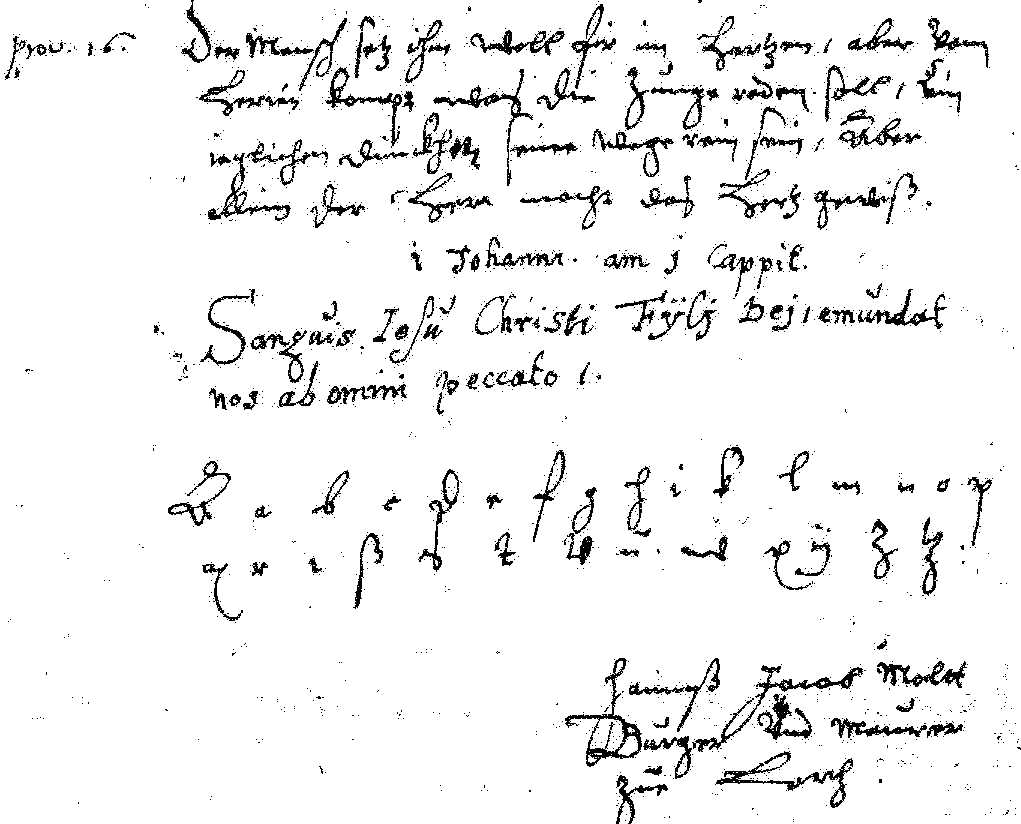 prov. 16. Der Mensch setz ihm woll für im Hertzen, aber vom
Herren kompt was die Zunge reden soll, Ein
ieglichen dünckhett seine wege rein sein, Aber
allein der Herr macht das Hertz gewiß.
1 Johanni. am 1 Cappit.
Sanguis Iesu Christi Fÿlij Dej, emundat
nos ab omini peccato 1.
A a b c d e f g h i k l m n o p
q r ß s t v u w x ÿ z tz
Hannß Jacob
Burger Vnd Maurer
zue Lorch